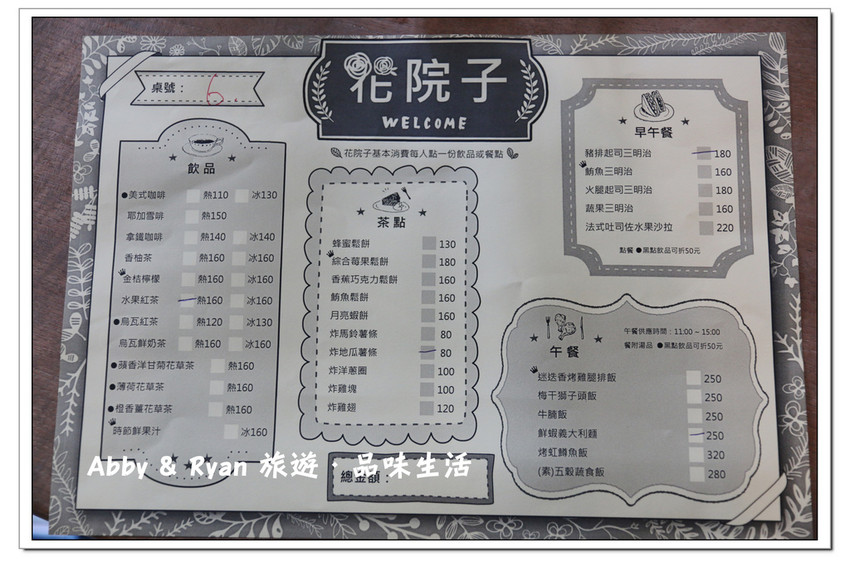 花院子
WELCOME
桌號：6.
花院子基本消費每人點一份飲品或餐點
飲品
●美式咖啡 熱110 冰130
耶加雪啡 熱150
拿鐵咖啡 熱140 冰140
香柚茶 熱160 冰160
金桔檸檬 熱160 冰160
水果紅茶 熱160 冰160
●烏瓦紅茶 熱120 冰130
烏瓦鮮奶茶 熱160 冰160
●蘋香洋甘菊花草茶 熱160
●薄荷花草茶 熱160
●橙香薑花草茶 熱160
時節鮮果汁 冰160
茶點
蜂蜜鬆餅 130
綜合莓果鬆餅 180
香蕉巧克力鬆餅 160
鮪魚鬆餅 160
月亮蝦餅 160
炸馬鈴薯條 80
炸地瓜薯條 80
炸洋蔥圈 100
炸雞塊 100
炸雞翅 120
總金額：
早午餐
豬排起司三明治 180
鮪魚三明治 160
火腿起司三明治 180
蔬果三明治 160
法式吐司佐水果沙拉 220
點餐 ●黑點飲品可折50元
午餐
午餐供應時間：11:00 ~ 15:00
餐附湯品 ●黑點飲品可折50元
迷迭香烤雞腿排飯 250
梅干獅子頭飯 250
牛腩飯 250
鮮蝦義大利麵 250
烤虹鱒魚飯 320
(素)五穀蔬食飯 280
Abby & Ryan 旅遊．品味生活